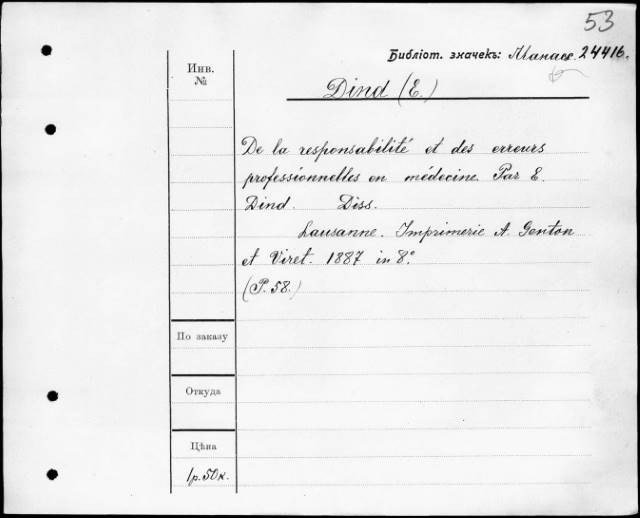 53
Библіот. значекъ: Manace. 24416.
Инв.
№
Dind (E.)
De la responsabilité et des erreurs
professionnelles en médecine. Par E.
Dind. Diss.
Lausanne. Imprimerie A. Genton
et Viret. 1887 in 8°.
(P. 58.)
По заказу
Откуда
Цѣна
1р. 50к.